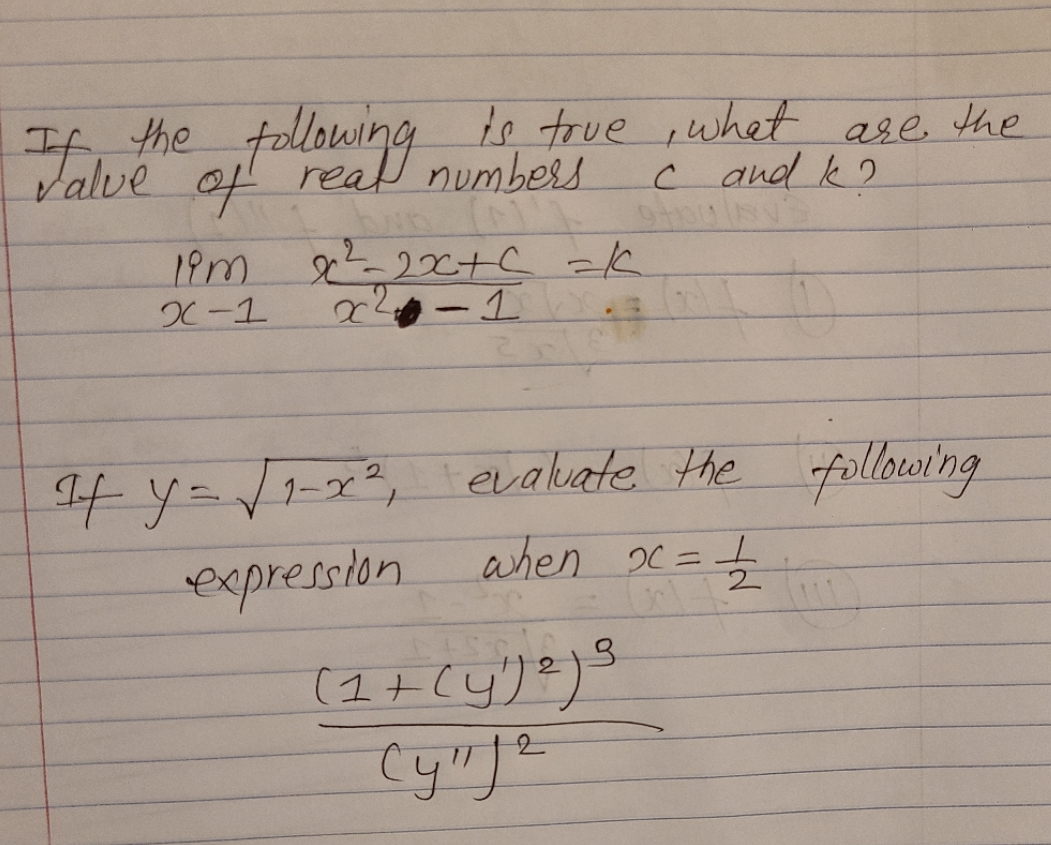 If the following is true, what are the
value of real numbers c and k?
lim x²-2x+c = k
x-1 x² - 1
If y = √1-x², evaluate the following
expression when x = 1/2
(1+(y')²)³
(y'')²